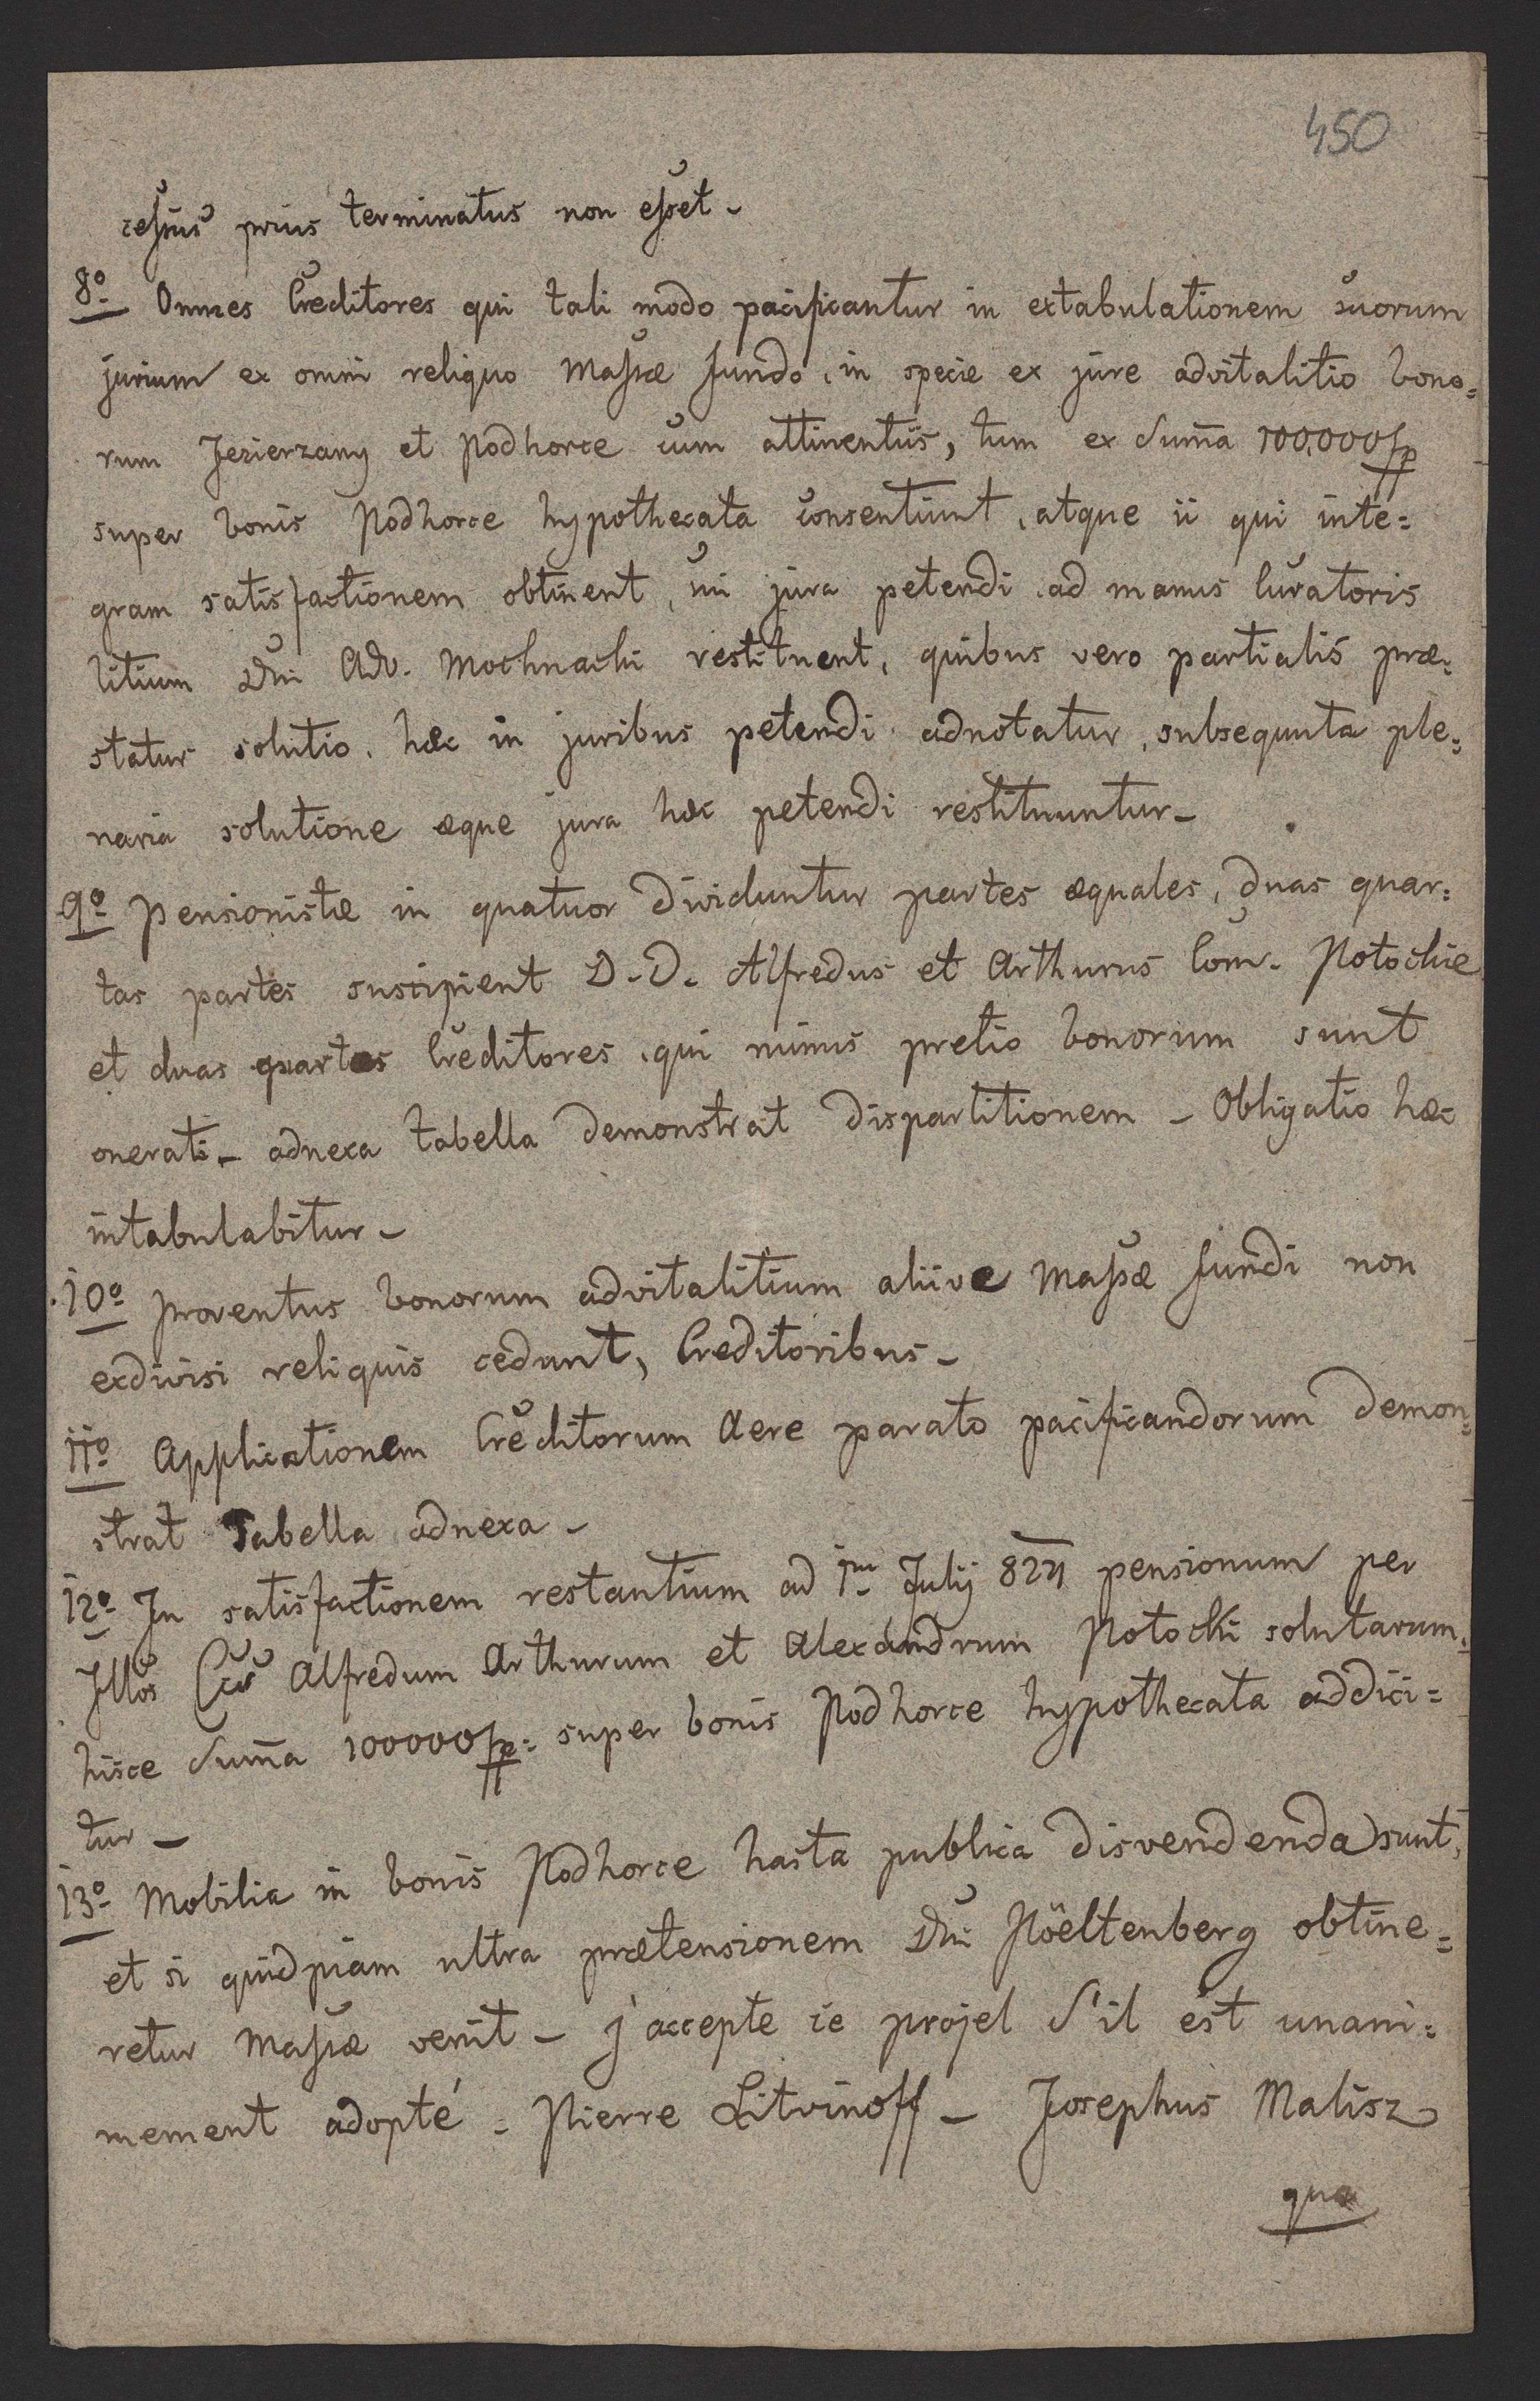 450
cessus prius terminatus non esset -
8o Omnes Creditores qui tali modo pacificantur in extabulationem suorum
jurium ex omni reliquo Massæ fundo, in specie ex jure advitalitio bono=
rum Jezierzany et Podhorce cum attinentiis, tum ex Suma 100,000 fp
super bonis Podhorce hypothecata consentiunt, atque ii qui inte=
gram satisfactionem obtinent, jura petendi ad manus Curatoris
litium Dni Adv. Mochnacki restituent, quibus vero partialis præ=
statur solutio, hæc in juribus petendi adnotatur, subsequuta ple=
naria solutione æque jura hæc petendi restituuntur -
9o Pensionistæ in quatuor dividuntur partes æquales, duas quar=
tas partes suscipient D. D. Alfredus et Arthurus Com. Potockie
et duas quartas Creditores, qui nimis pretio bonorum sunt
onerati - adnexa tabella demonstrat dispartitionem - Obligatio hæc
intabulabitur -
10o Proventus bonorum advitalitium aliive Massæ fundi non
exdivisi reliquis cedunt, Creditoribus -
11o Applicationem Creditorum Aere parato pacificandorum demon=
strat Tabella adnexa -
12o In satisfactionem restantium ad 1m July 821 pensionum per
Illos Alfredum Arthurum et Alexandrum Potocki solutarum,
hisce Suma 100000 fp: super bonis Podhorce hypothecata addici=
tur -
13o Mobilia in bonis Podhorce hasta publica disvendenda sunt,
et si quidpiam ultra prætensionem Dni Höeltenberg obtine=
retur Massæ venit - j'accepte ce projel S'il est unani=
mement adopté = Pierre Litvinoff - Josephus Malisz
qua